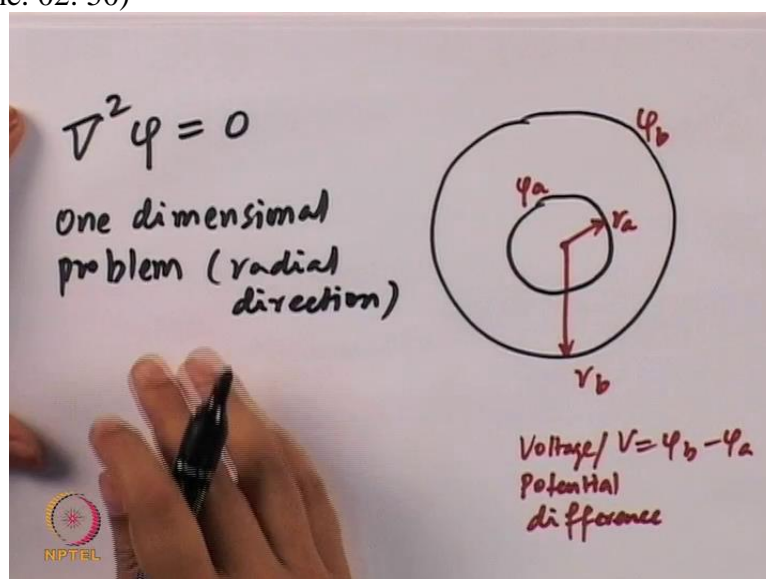 ne. 02: 50)
∇²φ = 0
One dimensional
problem (radial
direction)
φb
φa
ra
rb
Voltage/ V = φb - φa
Potential
difference
NPTEL